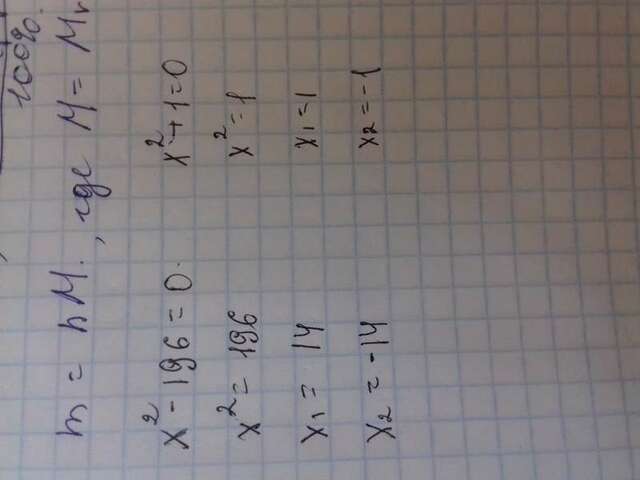 100%.
m = nM, где M = Mr
x² - 196 = 0.
x² = 196
x₁ = 14
x₂ = -14
x² + 1 = 0
x² = 1
x₁ = 1
x₂ = -1